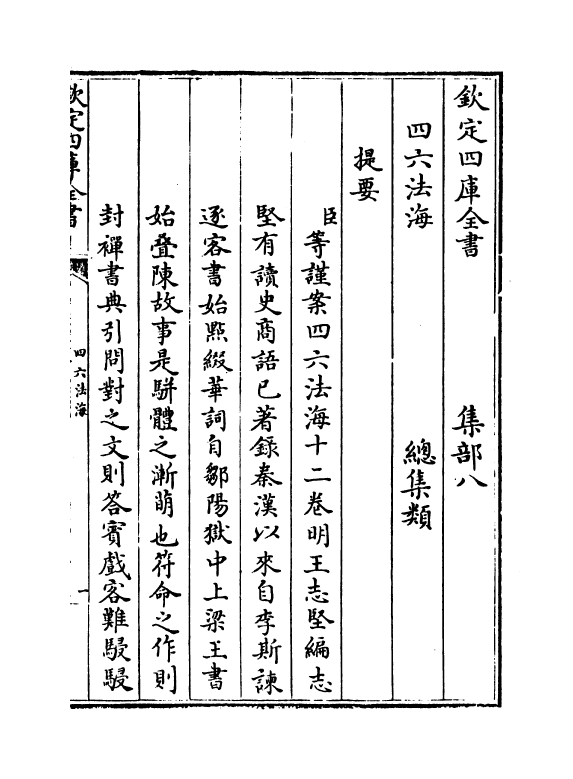 欽定四庫全書　集部八
四六法海　總集類
提要
臣等謹案四六法海十二卷明王志堅編志
堅有讀史商語已著錄秦漢以來自李斯諫
逐客書始點綴華詞自鄒陽獄中上梁王書
始疊陳故事是駢體之漸萌也符命之作則
封禪書典引問對之文則答賓戲客難駸駸
欽定四庫全書
四六法海
一